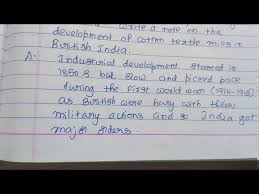 write a note on the
development of cotton textile mills in
British India.
A- Industrial development started in
1850s but slow and picked pace
during the first world war (1914-1918)
as British were busy with their
military actions and so India got
major orders.